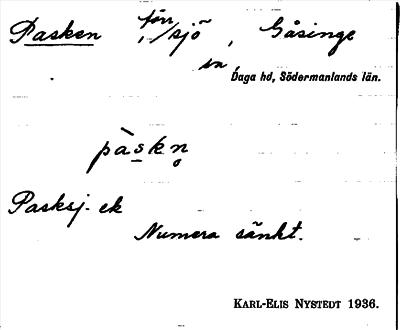 Pasken förr sjö, Gåsinge
sn, Daga hd, Södermanlands län.
pàskn̥
Pasksj. ek
Numera sänkt.
KARL-ELIS NYSTEDT 1936.